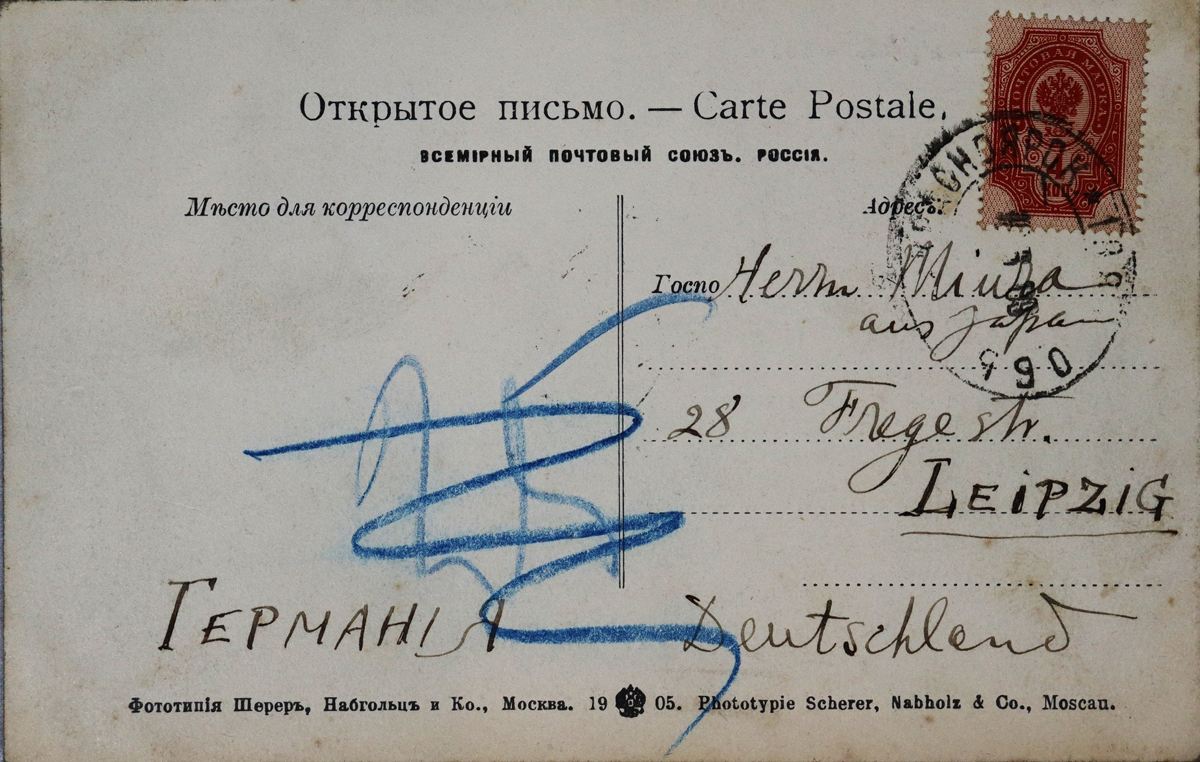 ПОЧТОВАЯ МАРКА
4
КОП.
Открытое письмо. — Carte Postale.
ВСЕМІРНЫЙ ПОЧТОВЫЙ СОЮЗЪ. РОССІЯ.
Мѣсто для корреспонденціи
Адресъ.
КРАСНОЯРСК
Госпо Herrn Miura
aus Japan
28 Frege str.
LEiPZiG
ГЕРМАНІЯ Deutschland
Фототипія Шереръ, Набгольцъ и Ко., Москва. 19 05. Phototypie Scherer, Nabholz & Co., Moscau.